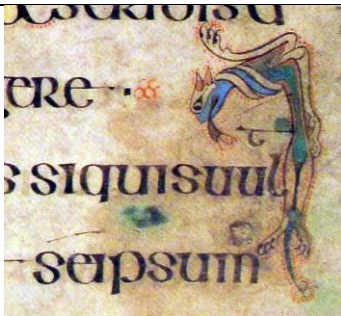 ere
t
s siquisuul
seipsum